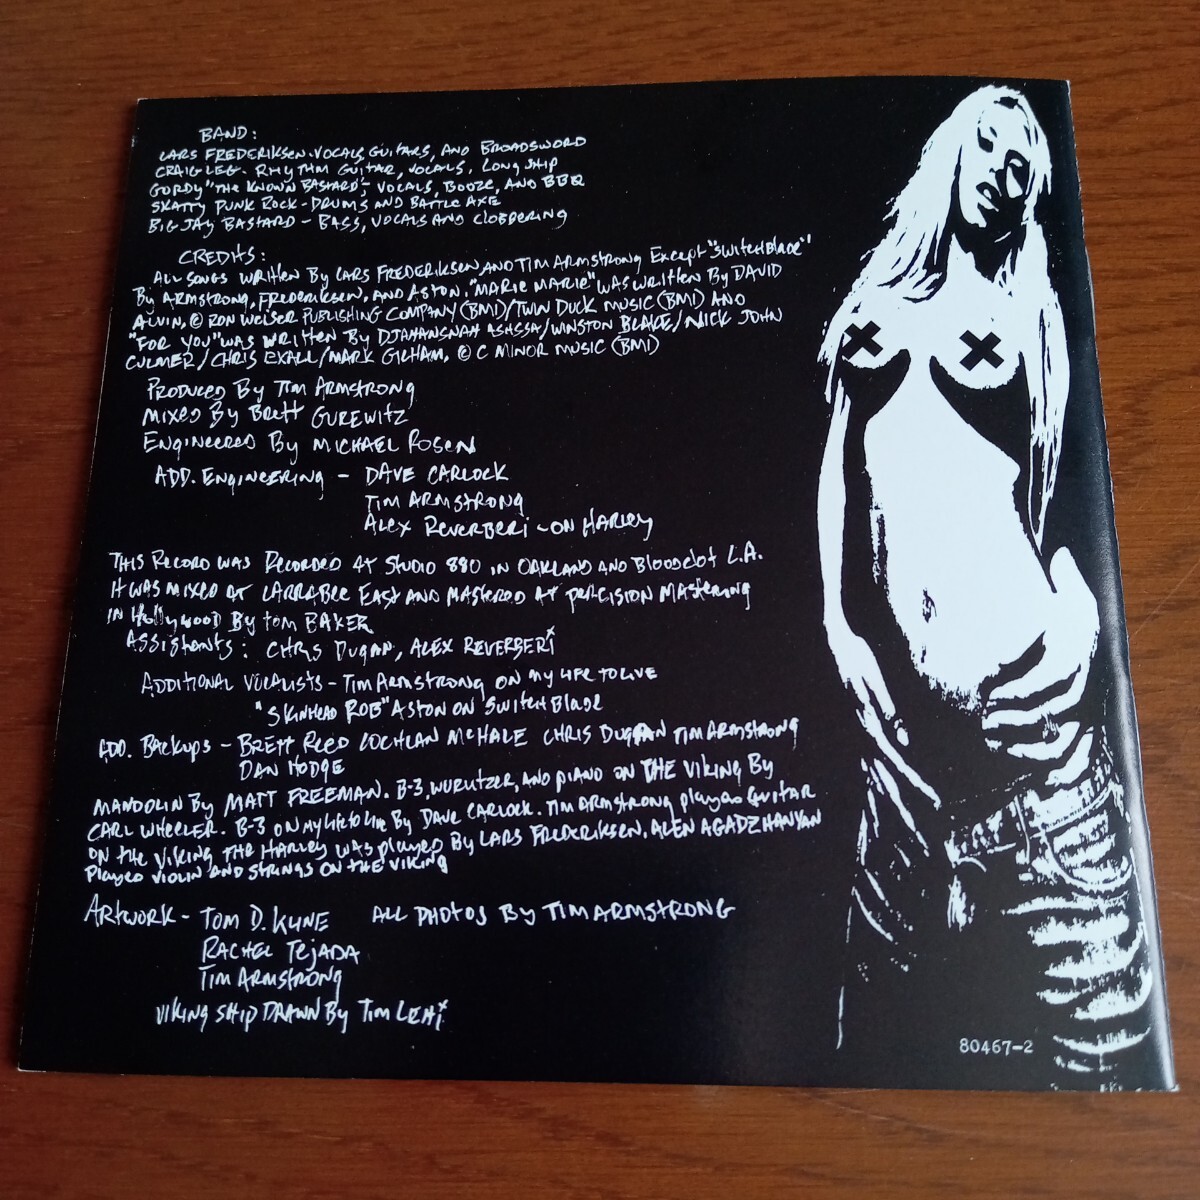 BAND:
LARS FREDERIKSEN-VOCALS, GUITARS, AND BROADSWORD
CRAIG LEG- RHYTHM GUITAR, VOCALS, LONG SHIP
GORDY "THE KNOWN BASTARD"- VOCALS, BOOZE, AND BBQ
SKATTY PUNK ROCK- DRUMS AND BATTLE AXE
BIG JAY BASTARD - BASS, VOCALS AND CLOBBERING
CREDITS:
ALL SONGS WRITTEN BY LARS FREDERIKSEN AND TIM ARMSTRONG EXCEPT "SWITCHBLADE"
BY ARMSTRONG, FREDERIKSEN, AND ASTON. "MARIE MARIE" WAS WRITTEN BY DAVID
ALVIN, © RON WEISER PUBLISHING COMPANY (BMI)/TWIN DUCK MUSIC (BMI) AND
"FOR YOU" WAS WRITTEN BY DJAHANSHAH ASHSSA/WINSTON BLAKE/NICK JOHN
CULMER/CHRIS EXALL/MARK GILHAM, © C MINOR MUSIC (BMI)
PRODUCED BY TIM ARMSTRONG
MIXED BY BRETT GUREWITZ
ENGINEERED BY MICHAEL ROSEN
ADD. ENGINEERING - DAVE CARLOCK
TIM ARMSTRONG
ALEX REVERBERI - ON HARLEY
THIS RECORD WAS RECORDED AT STUDIO 880 IN OAKLAND AND BLOODCLOT L.A.
IT WAS MIXED AT LARRABEE EAST AND MASTERED AT PERCISION MASTERING
IN HOLLYWOOD BY TOM BAKER
ASSISTANTS: CHRIS DUGAN, ALEX REVERBERI
ADDITIONAL VOCALISTS - TIM ARMSTRONG ON MY LIFE TO LIVE
"SKINHEAD ROB" ASTON ON SWITCHBLADE
ADD. BACKUPS - BRETT REED LOCHLAN McHALE CHRIS DUGAN TIM ARMSTRONG
DAN HODGE
MANDOLIN BY MATT FREEMAN. B-3, WURLITZER, AND PIANO ON THE VIKING BY
CARL WHEELER. B-3 ON MY LIFE TO LIVE BY DAVE CARLOCK. TIM ARMSTRONG PLAYED GUITAR
ON THE VIKING. THE HARLEY WAS PLAYED BY LARS FREDERIKSEN. ALEN AGADZHANYAN
PLAYED VIOLIN AND STRINGS ON THE VIKING
ARTWORK - TOM D. KLINE ALL PHOTOS BY TIM ARMSTRONG
RACHEL TEJADA
TIM ARMSTRONG
VIKING SHIP DRAWN BY TIM LEHI
80467-2